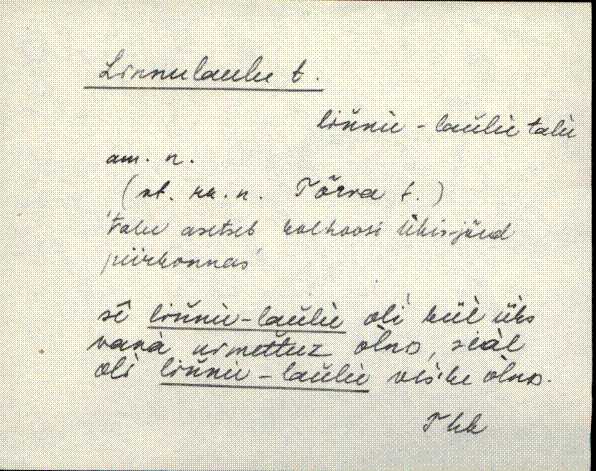 Linnulaulu t.
liňnu - laŭlu talu
am. n.
(vt. rk. n. Tõrva t.)
'talu asetseb kolhoosi Ühisjõud
piirkonnas'
sē liňnu-laŭlu olì kül üks
vanà nimettuz òlno, sial
olì liňnu-laŭlu veške òlno.
Thk